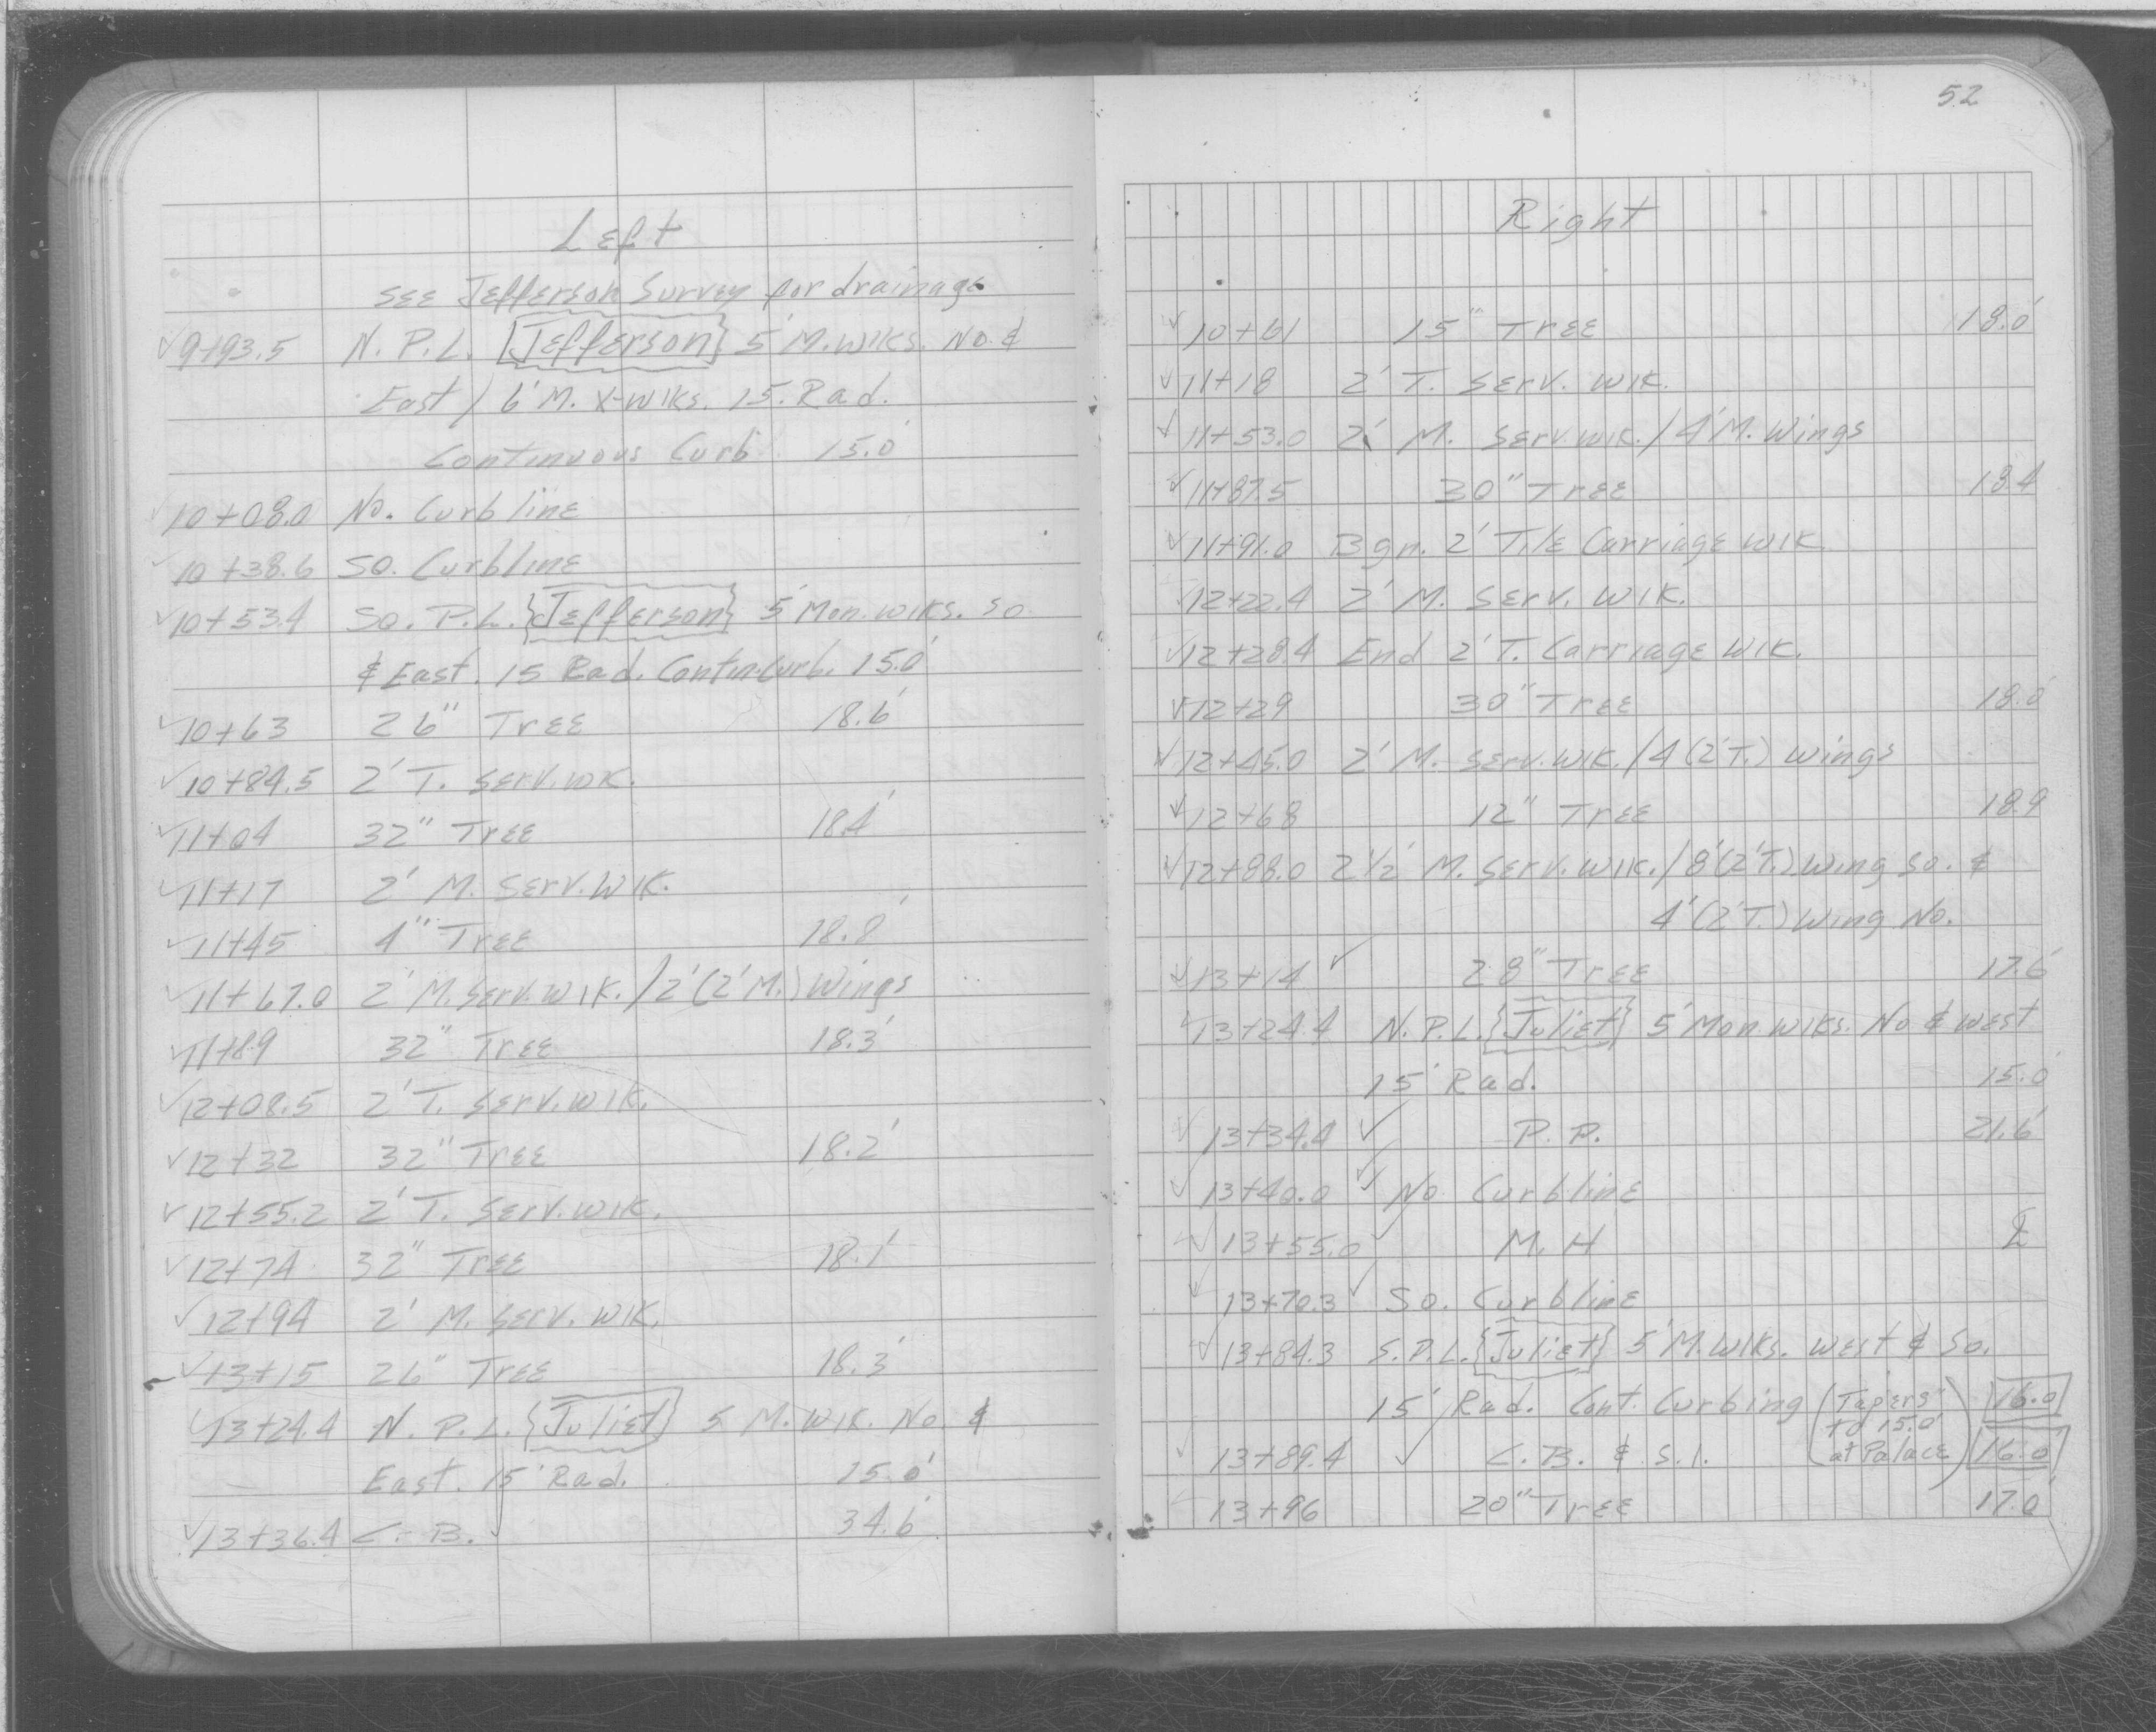 52
Left
See Jefferson Survey for drainage
✓ 9+93.5 N. P. L. {Jefferson} 5' M. Wlks. No. &
East / 6' M. X-Wlks. 15. Rad.
Continuous Curb 15.0'
10+08.0 No. Curbline
10+38.6 So. Curbline
✓ 10+53.4 So. P. L. {Jefferson} 5' Mon. Wlks. So
& East. 15 Rad. Contin. Curb. 15.0'
✓ 10+63 26" Tree 18.6'
✓ 10+84.5 2' T. Serv. Wk.
✓ 11+04 32" Tree 18.4'
✓ 11+17 2' M. Serv. Wlk.
✓ 11+45 4" Tree 18.8'
✓ 11+67.0 2' M. Serv. Wlk. / 2' (2' M.) Wings
✓ 11+89 32" Tree 18.3'
✓ 12+08.5 2' T. Serv. Wlk.
✓ 12+32 32" Tree 18.2'
✓ 12+55.2 2' T. Serv. Wlk.
✓ 12+74 32" Tree 18.1'
✓ 12+94 2' M. Serv. Wlk.
✓ 13+15 26" Tree 18.3'
✓ 13+24.4 N. P. L. {Juliet} 5 M. Wlk. No. &
East. 15' Rad. 15.0'
✓ 13+36.4 C. B. 34.6'
Right
✓ 10+61 15" Tree 18.0'
✓ 11+18 2' T. Serv. Wlk.
✓ 11+53.0 2' M. Serv. Wlk. / 4' M. Wings
✓ 11+87.5 30" Tree 18.4
✓ 11+91.0 Bgn. 2' Tile Carriage Wlk.
✓ 12+22.4 2' M. Serv. Wlk.
✓ 12+28.4 End 2' T. Carriage Wlk.
✓ 12+29 30" Tree 18.0'
✓ 12+45.0 2' M. Serv. Wlk. / 4 (2' T.) Wings
✓ 12+68 12" Tree 18.9
✓ 12+88.0 2 1/2' M. Serv. Wlk. / 8' (2' T.) Wing So. &
4' (2' T.) Wing No.
✓ 13+14 ✓ 28" Tree 17.6'
✓ 13+24.4 N. P. L. {Juliet} 5' Mon. Wlks. No & West
15' Rad. 15.0'
✓ 13+34.4 ✓ P. P. 21.6'
✓ 13+40.0 ✓ No Curbline
✓ 13+55.0 ✓ M. H ℄
✓ 13+70.3 ✓ So. Curbline
✓ 13+84.3 S. P. L. {Juliet} 5' M. Wlks. West & So.
15' Rad. Cont. Curbing (Tapers 16.0
to 15.0'
✓ 13+89.4 ✓ C. B. & S. I. at Palace) 16.0
✓ 13+96 20" Tree 17.0'